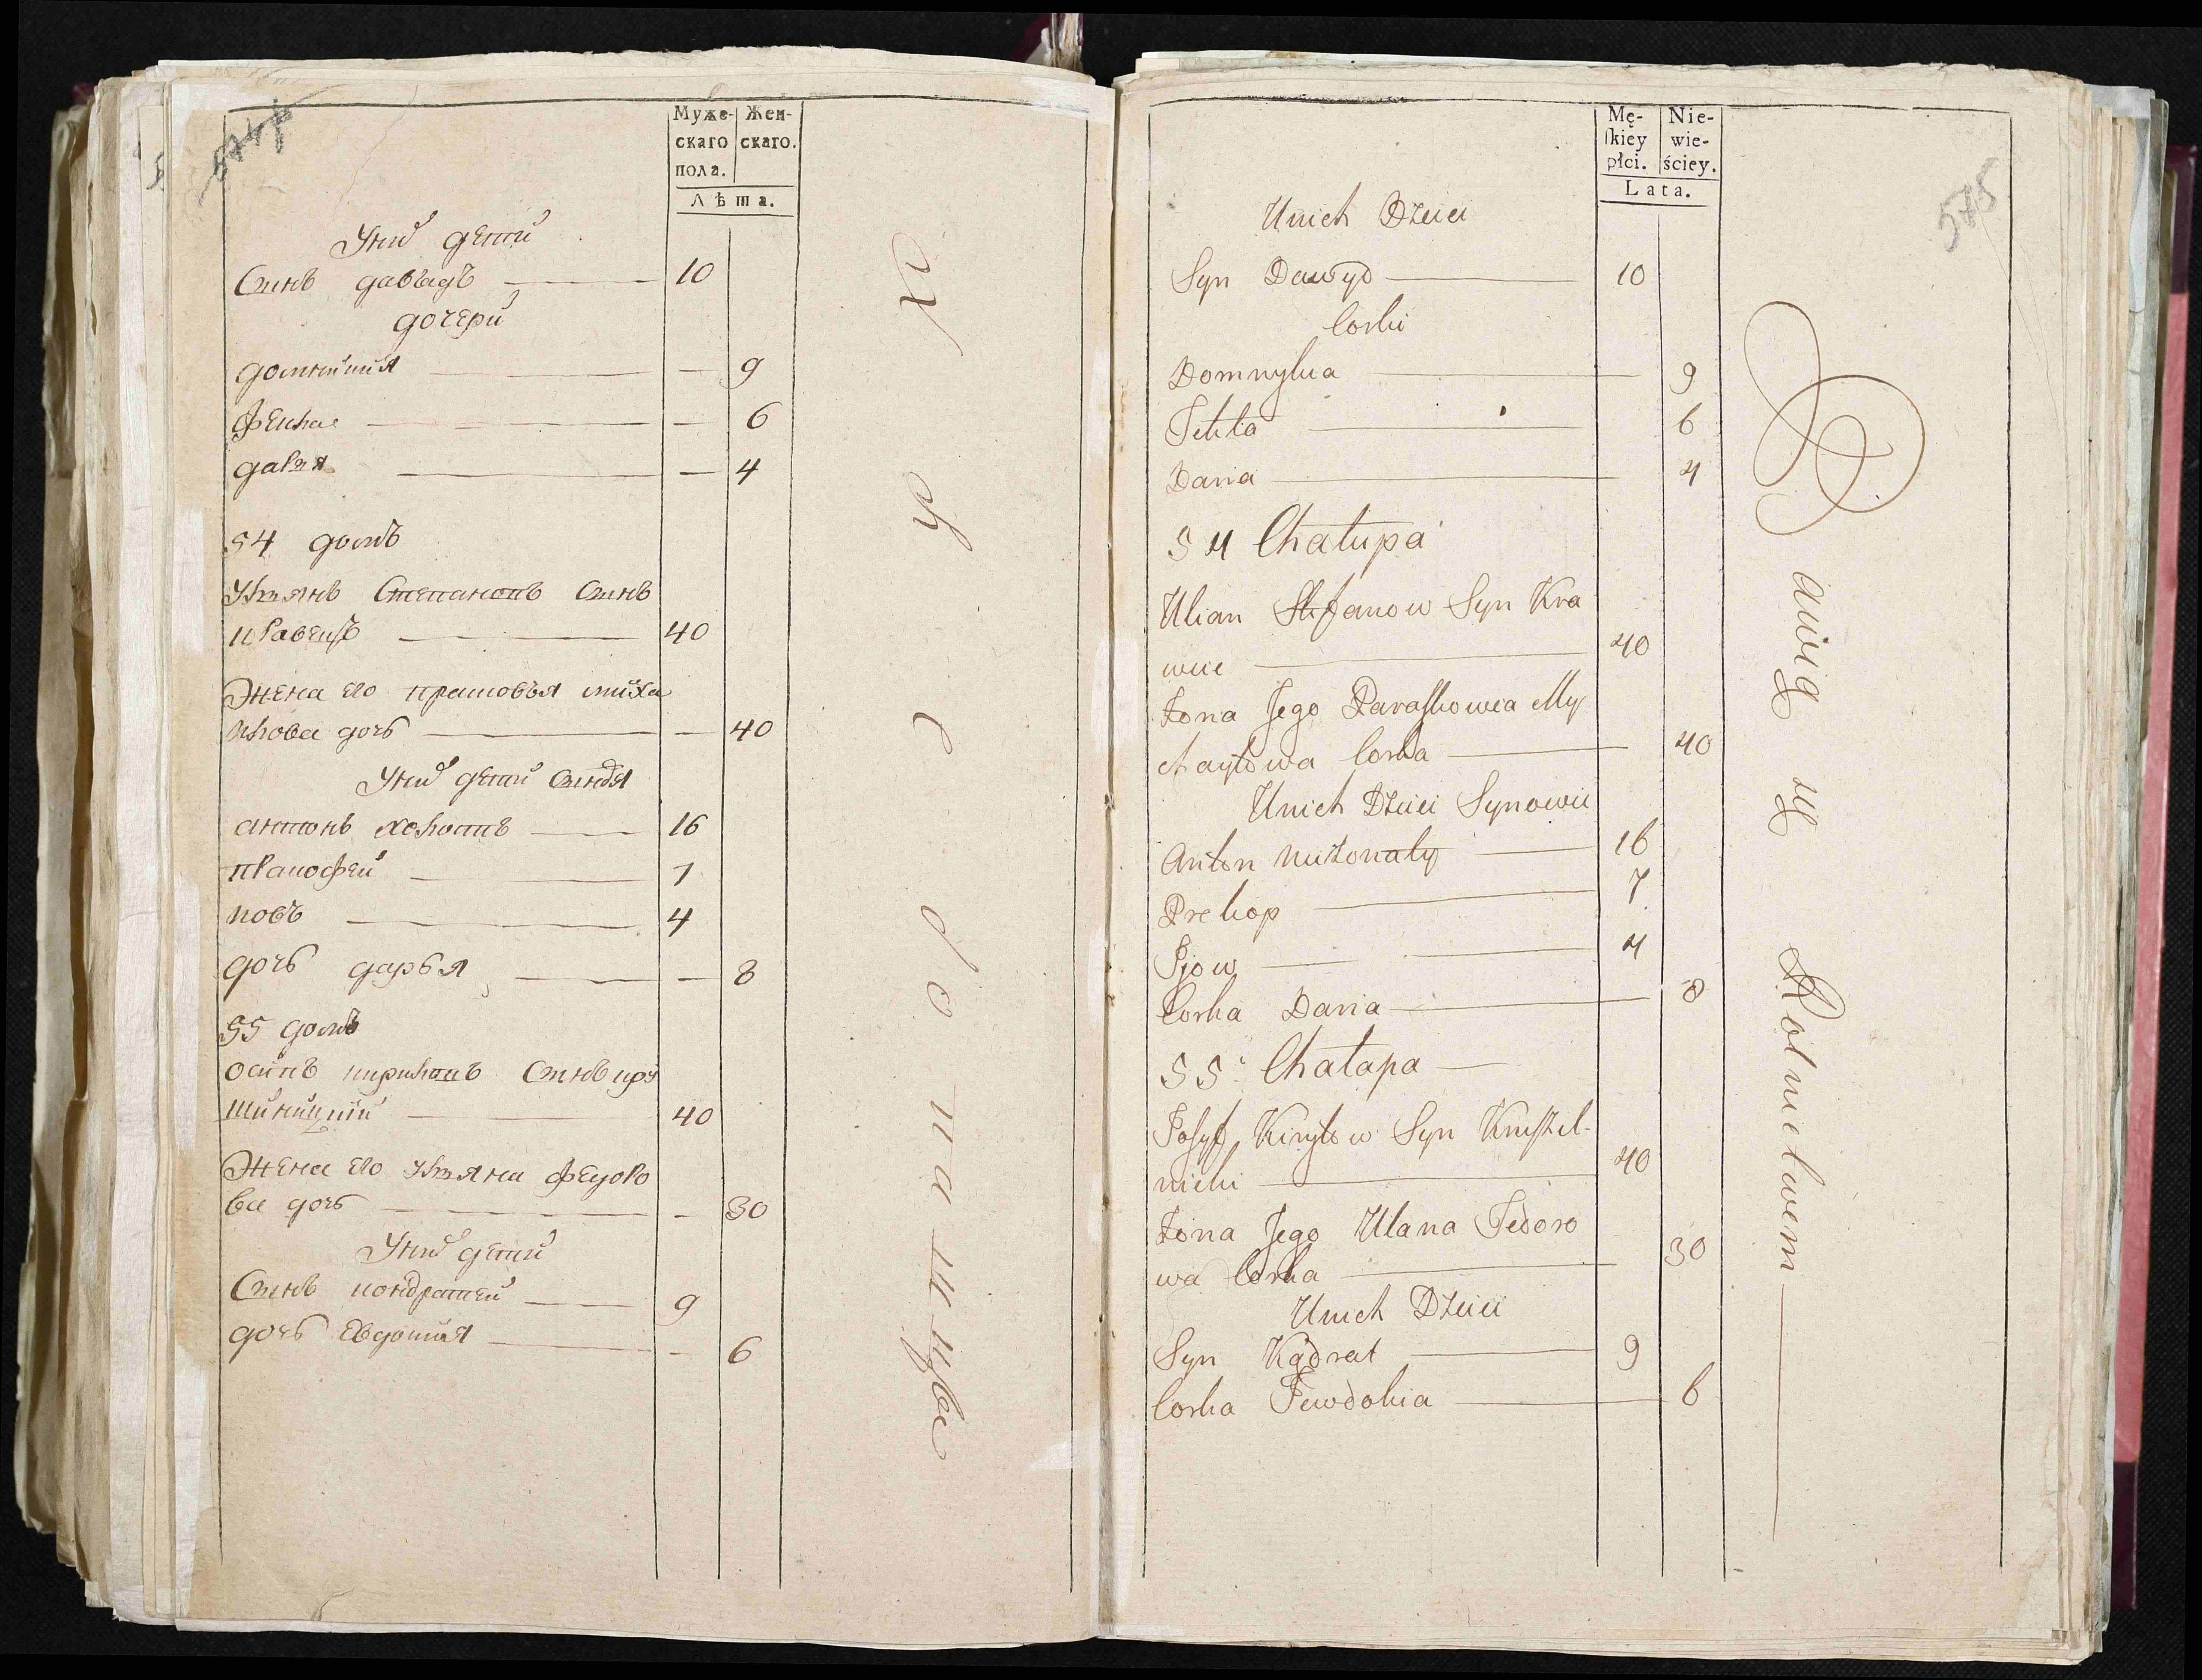 Муже-
скаго
пола.
Жен-
скаго.
Лѣта.
Унихъ дети
Синъ давыдъ 10
дочери
домникия 9
Фекла 6
даря 4
54 домъ
Улянъ Степановъ Синъ
кравецъ 40
Жена его прасковья миха
йлова дочь 40
Унихъ дети Синовя
антонъ холостъ 16
прокофей 7
иовъ 4
дочь дарья 8
55 домъ
осипъ кириловъ Синъ кру
шиницкий 40
Жена его Уляна федоро
ва дочь 30
Унихъ дети
Синъ кондратей 9
дочь Евдокия 6
575
Mę-
skiey
płci.
Nie-
wie-
ściey.
Lata.
Unich Dzieci
Syn Dawyd 10
Corki
Domnykia 9
Tekla 6
Daria 4
54 Chałupa
Ulian Stefanow Syn Kra
wiec 40
Żona Jego Paraskowia My
chayłowa Corka 40
Unich Dzieci Synowie
Anton nieżonaty 16
Prokop 7
Jjow 4
Corka Daria 8
55 Chałapa
Josyf Kiryłow Syn Kruszel-
nicki 40
Żona Jego Ulana Fedoro
wa Corka 30
Unich Dzieci
Syn Kądrat 9
Corka Jewdokia 6